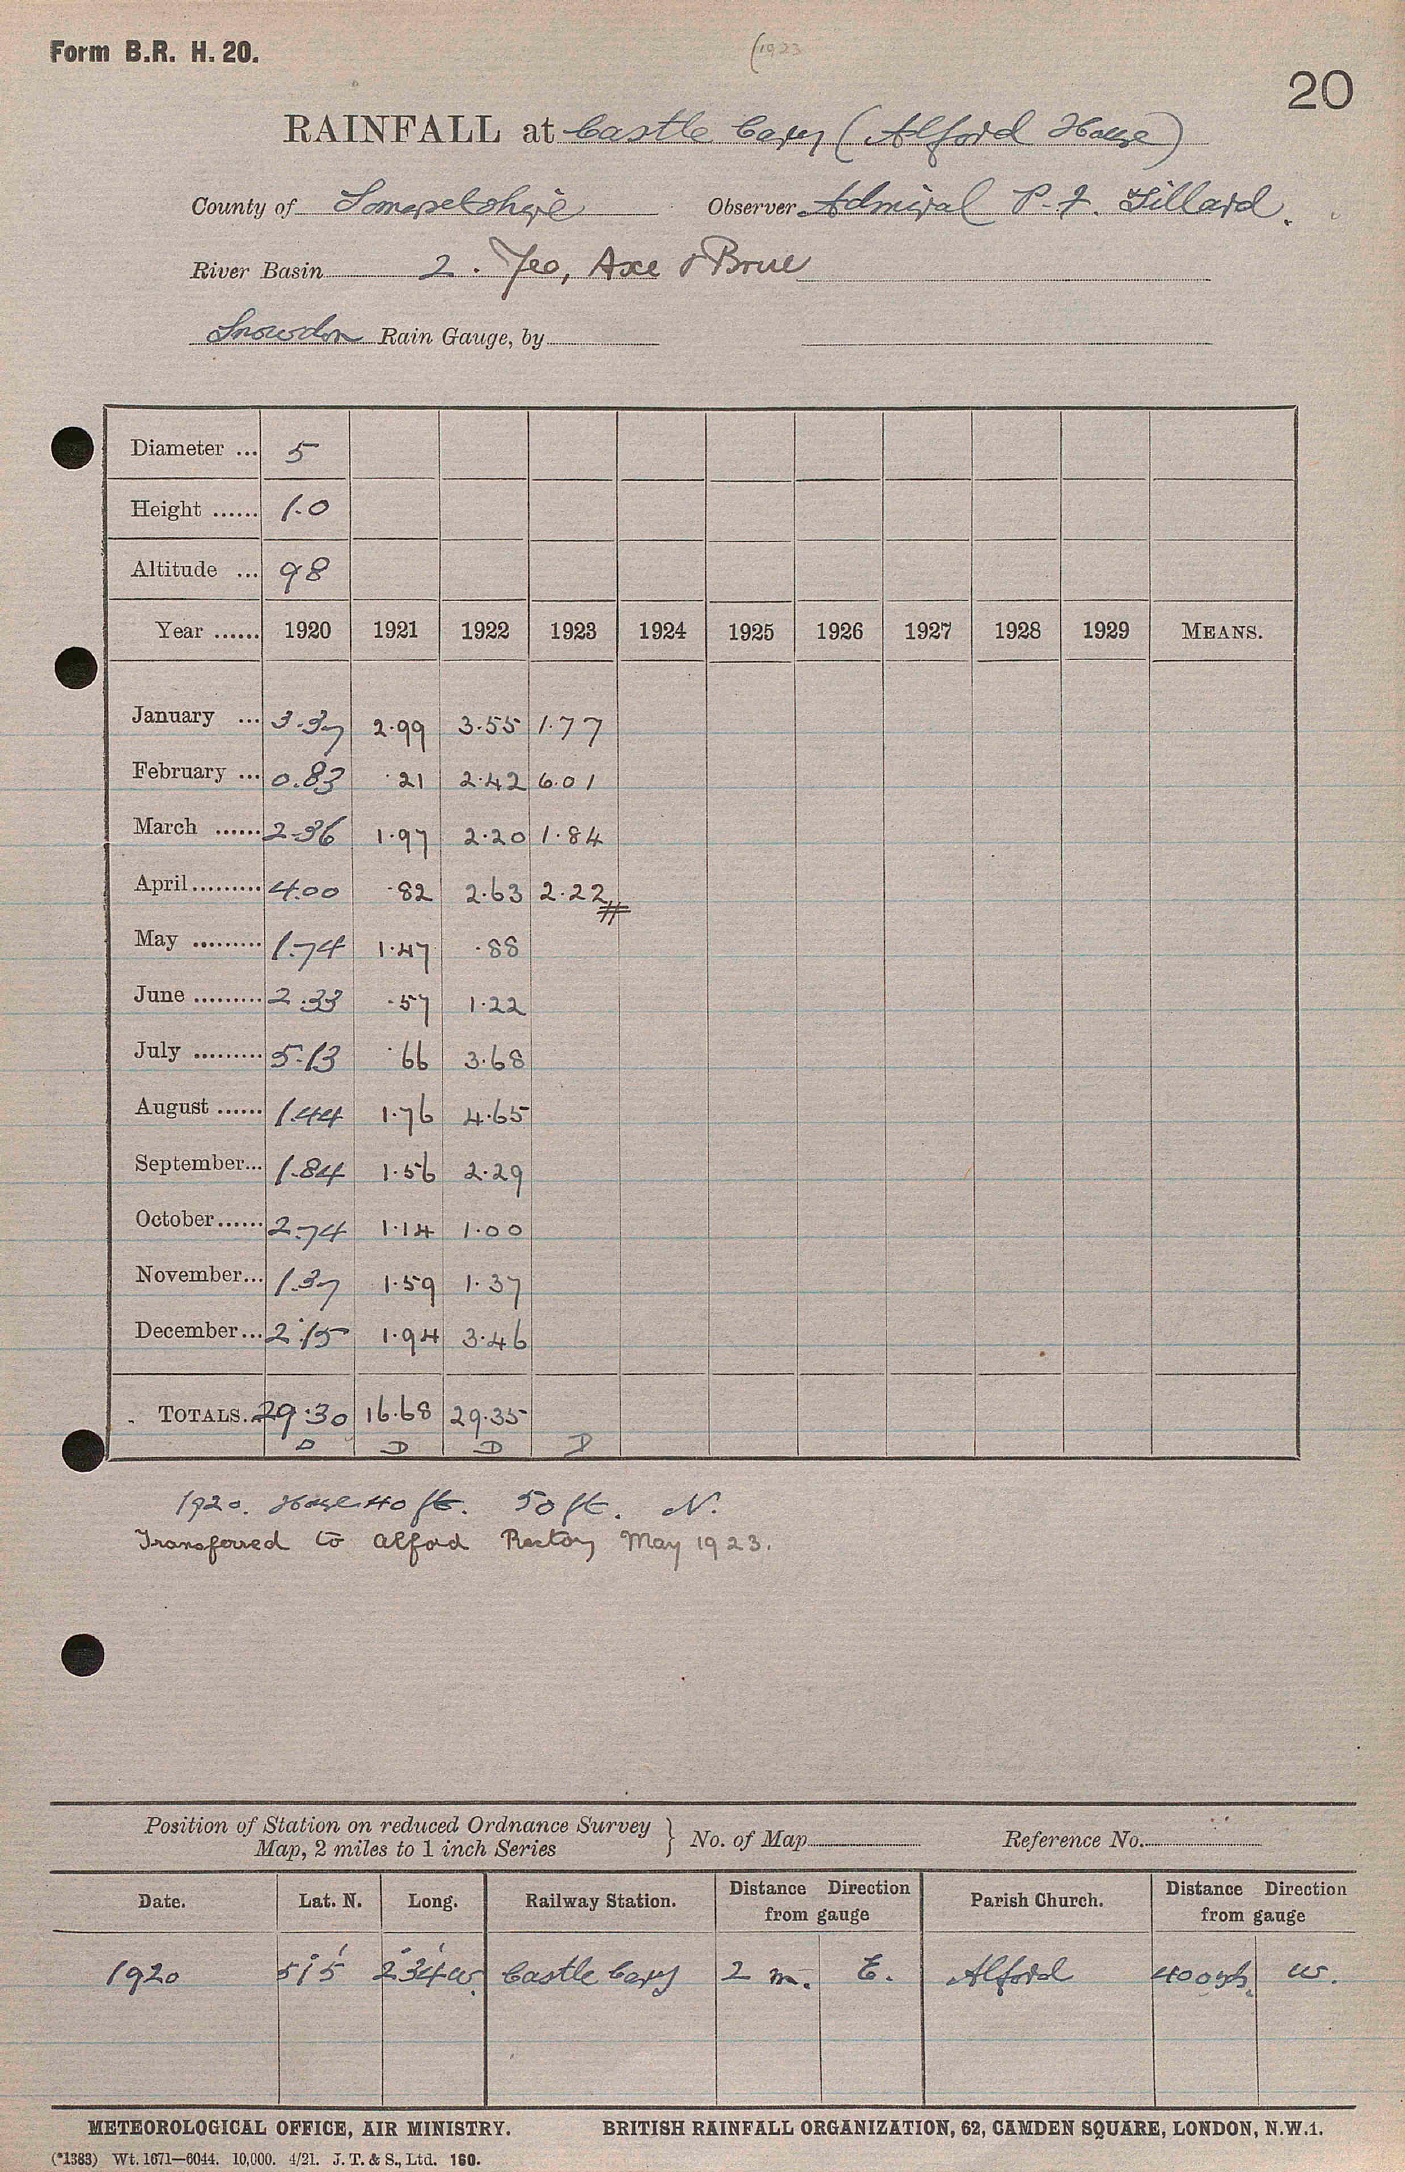 Form B.R. H. 20.
(1923
20
RAINFALL at Castle Cary (Alford House)
County of Somersetshire Observer Admiral P. F. Tillard.
River Basin 2. Yeo, Axe & Brue
Snowdon Rain Gauge, by
Diameter ... 5
Height ...... 1.0
Altitude ... 98
Year ...... 1920 1921 1922 1923 1924 1925 1926 1927 1928 1929 MEANS.
January ... 3.37 2.99 3.55 1.77
February ... 0.83 .21 2.42 6.01
March ...... 2.36 1.97 2.20 1.84
April ......... 4.00 .82 2.63 2.22
May ......... 1.74 1.47 .88
June ......... 2.33 .57 1.22
July ......... 5.13 .66 3.68
August ...... 1.44 1.76 4.65
September... 1.84 1.56 2.29
October...... 2.74 1.14 1.00
November... 1.37 1.59 1.37
December... 2.15 1.94 3.46
TOTALS. 29.30 16.68 29.35
D D D D
1920. House 40 ft. 50 ft. N.
Transferred to Alford Rectory May 1923.
Position of Station on reduced Ordnance Survey
Map, 2 miles to 1 inch Series } No. of Map Reference No.
Date. Lat. N. Long. Railway Station. Distance Direction from gauge Parish Church. Distance Direction from gauge
1920 51° 5' 2° 34' W. Castle Cary 2 m. E. Alford 400 yds. W.
METEOROLOGICAL OFFICE, AIR MINISTRY. BRITISH RAINFALL ORGANIZATION, 62, CAMDEN SQUARE, LONDON, N.W.1.
(*1383) Wt. 1671—6044. 10,000. 4/21. J. T. & S., Ltd. 160.